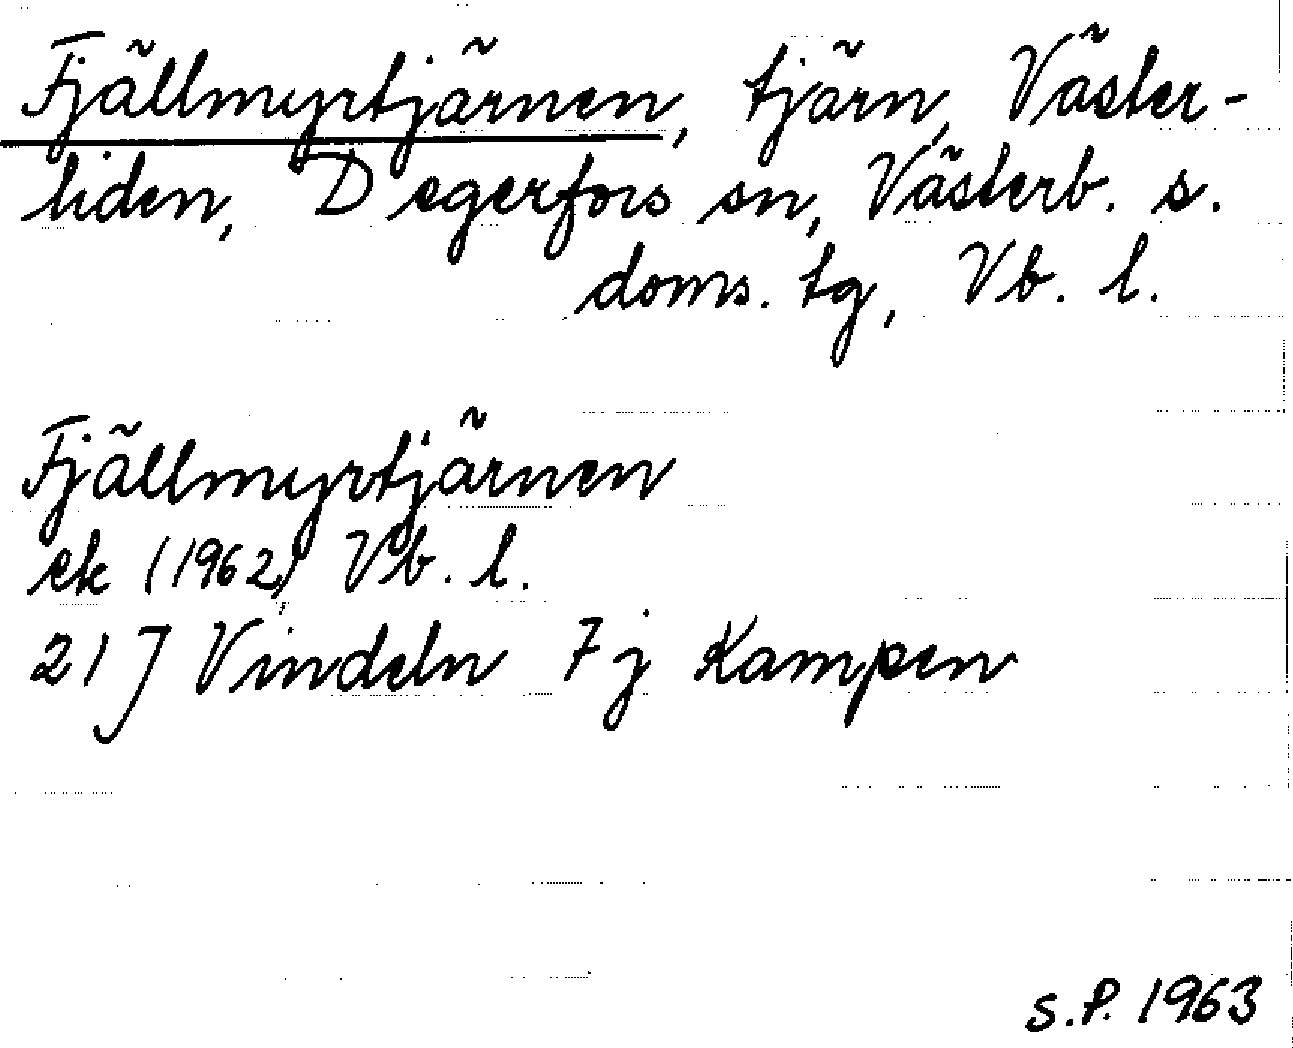 Fjällmyrtjärnen, tjärn, Väster-
liden, Degerfors sn, Västerb. s.
doms. tg, Vb. l.
Fjällmyrtjärnen
ek (1962) Vb. l.
21J Vindeln 7j Kampen
S.P. 1963